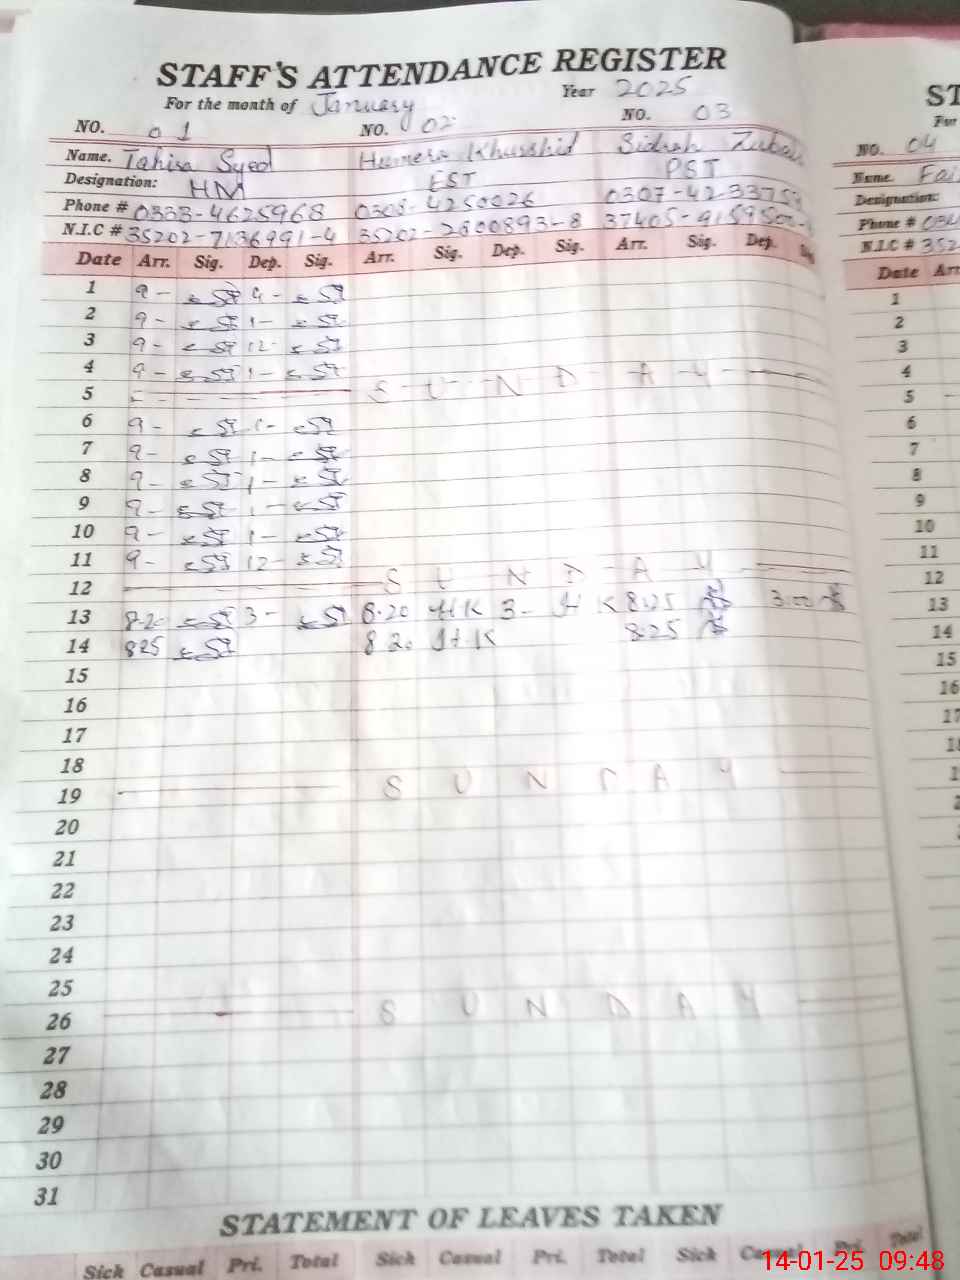 STAFF'S ATTENDANCE REGISTER
For the month of January Year 2025
NO. 01 NO. 02 NO. 03
Name. Tahira Syed Humera Khurshid Sidrah
Designation: HM EST PST
Phone # 0333-4625968 0308-4250026 0307-4233759
N.I.C # 35202-7136991-4 35202-2800893-8 37405-91595
Date Arr. Sig. Dep. Sig. Arr. Sig. Dep. Sig. Arr. Sig. Dep.
1 9- 9-
2 9- 1-
3 9- 12-
4 9- 1-
5 SUNDAY
6 9- 1-
7 9- 1-
8 9- 1-
9 9- 1-
10 9- 1-
11 9- 12-
12 SUNDAY
13 8.20 3- 8.20 HK 3- HK 8:25 3:00
14 825 8 20 HK 8:25
15
16
17
18
19 SUNDAY
20
21
22
23
24
25
26 SUNDAY
27
28
29
30
31
STATEMENT OF LEAVES TAKEN
Sick Casual Pri. Total Sick Casual Pri. Total Sick Casual Pri. Total
ST
For
NO. 04
Name. Fai
Designation:
Phone #
N.I.C # 352
Date Arr
1
2
3
4
5
6
7
8
9
10
11
12
13
14
15
16
14-01-25 09:48